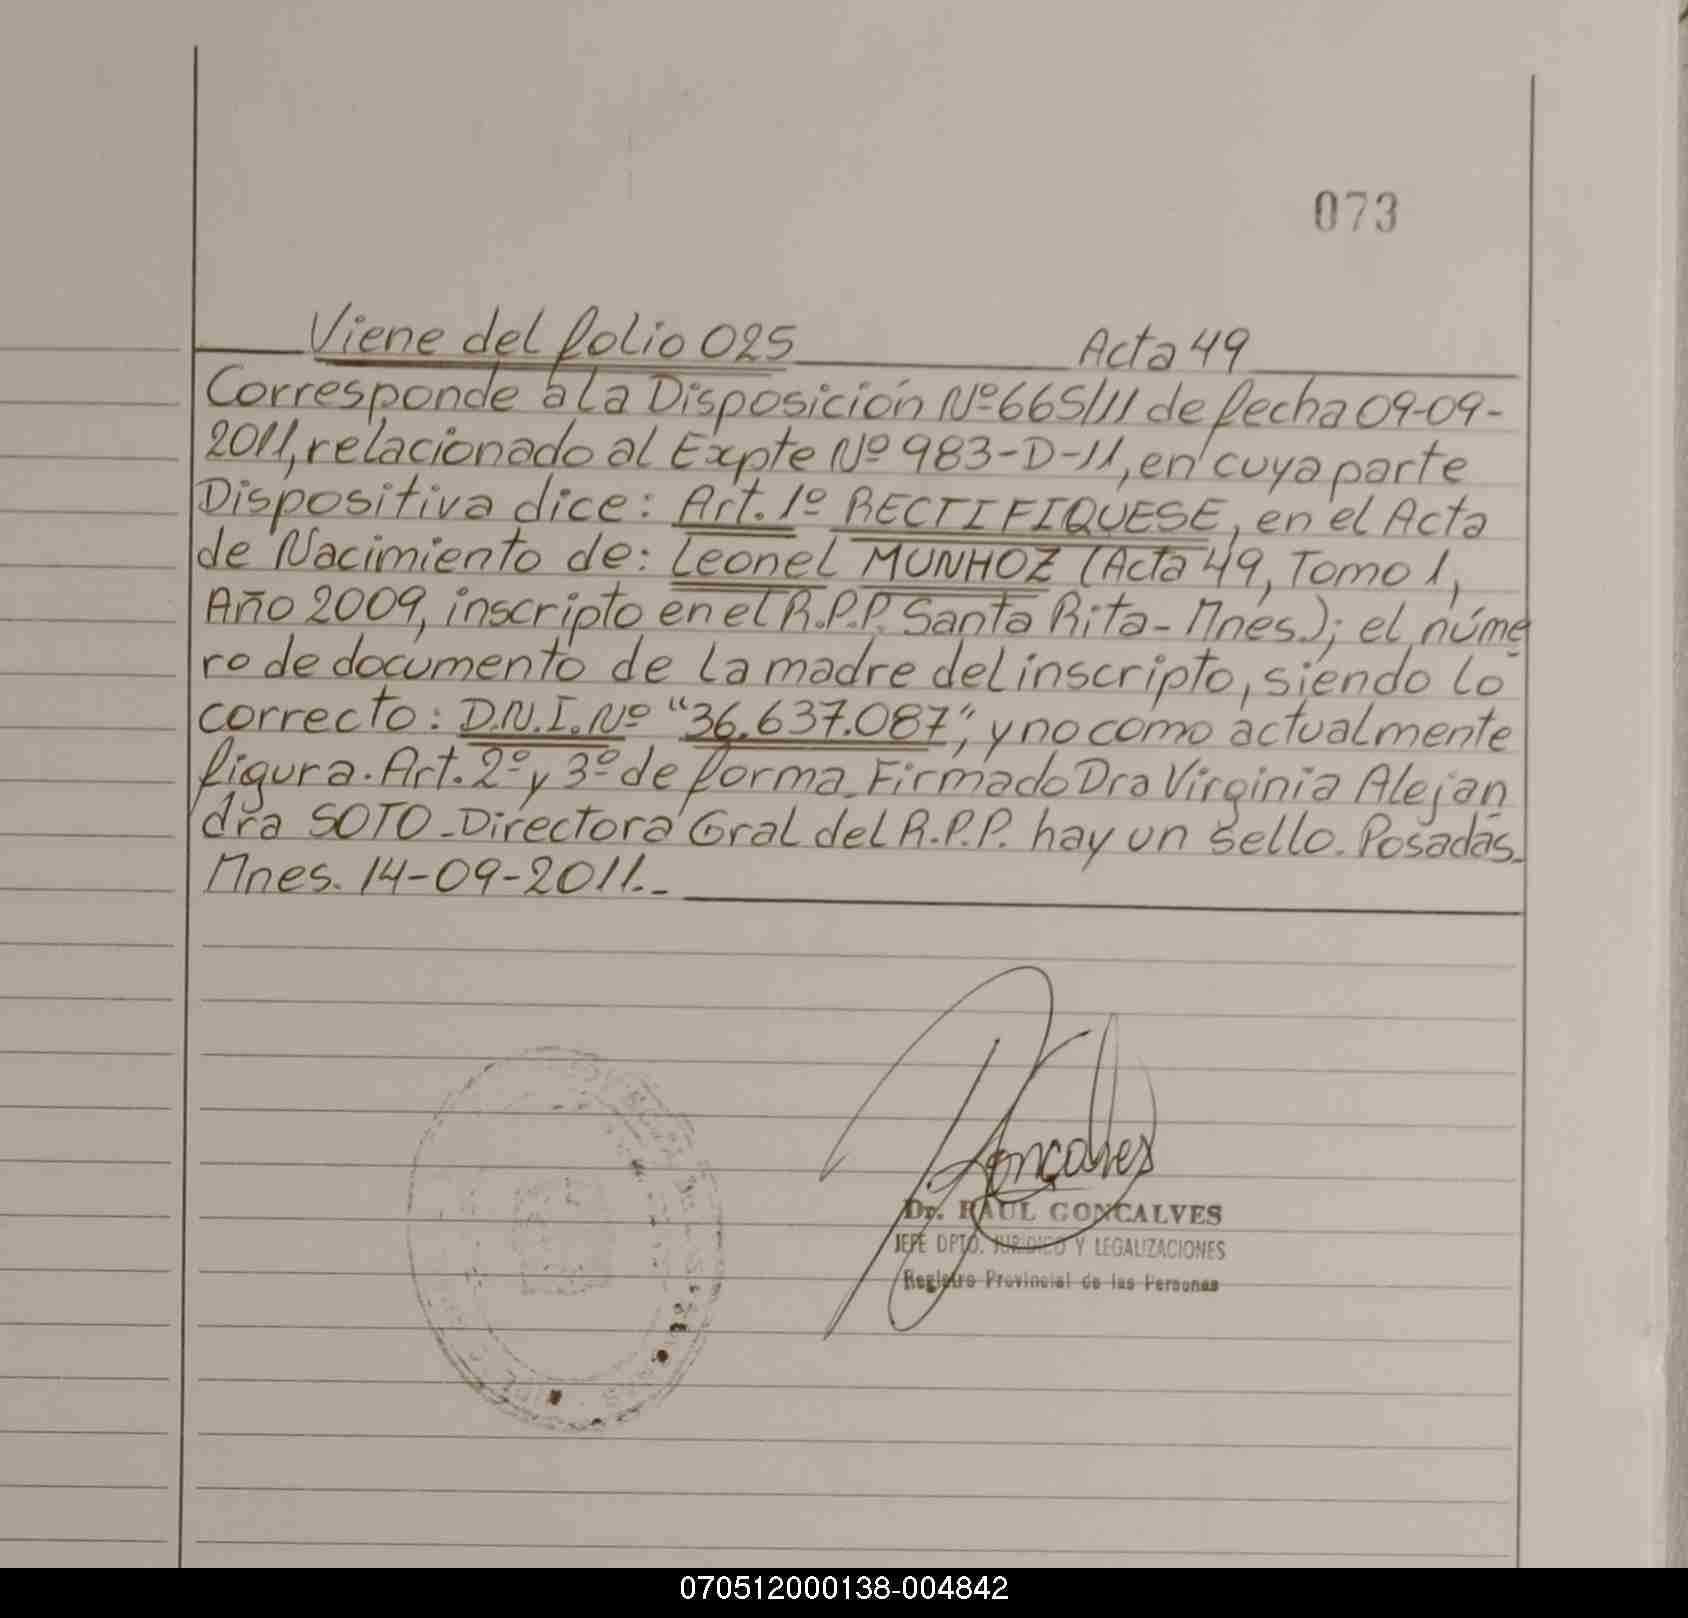 073
Viene del folio 025 Acta 49
Corresponde a la Disposición Nº 665/11 de fecha 09-09-
2011, relacionado al Expte Nº 983-D-11, en cuya parte
Dispositiva dice: Art. 1º RECTIFIQUESE, en el Acta
de Nacimiento de: Leonel MUNHOZ (Acta 49, Tomo 1,
Año 2009, inscripto en el R.P.P. Santa Rita - Mnes.); el núme
ro de documento de la madre del inscripto, siendo lo
correcto: D.N.I. Nº "36.637.087", y no como actualmente
figura. Art. 2º y 3º de forma. Firmado Dra Virginia Alejan
dra SOTO - Directora Gral del R.P.P. hay un sello. Posadas.
Mnes. 14-09-2011.-
Goncalves
Dr. RAUL GONCALVES
JEFE DPTO. JURIDICO Y LEGALIZACIONES
Registro Provincial de las Personas
070512000138-004842